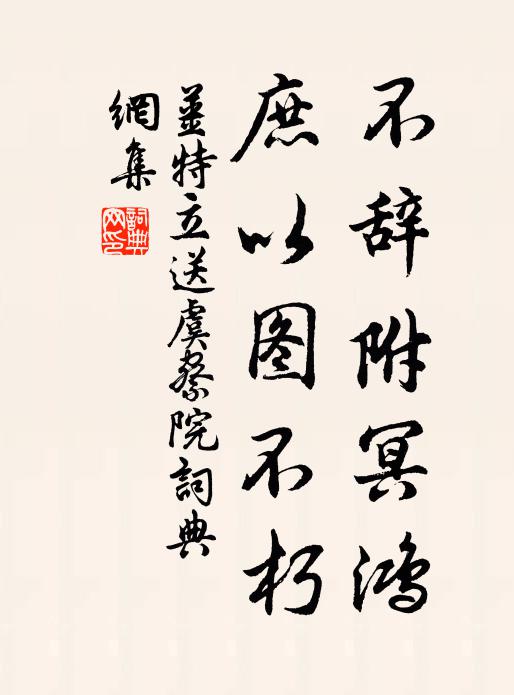 不辞附冥鸿
庶以图不朽
姜特立送虞察院詞典
網集
詞典
网印